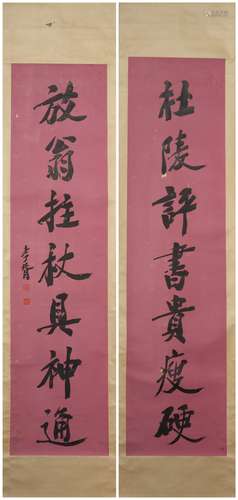 杜陵評書貴瘦硬
放翁拄杖具神通
孝胥